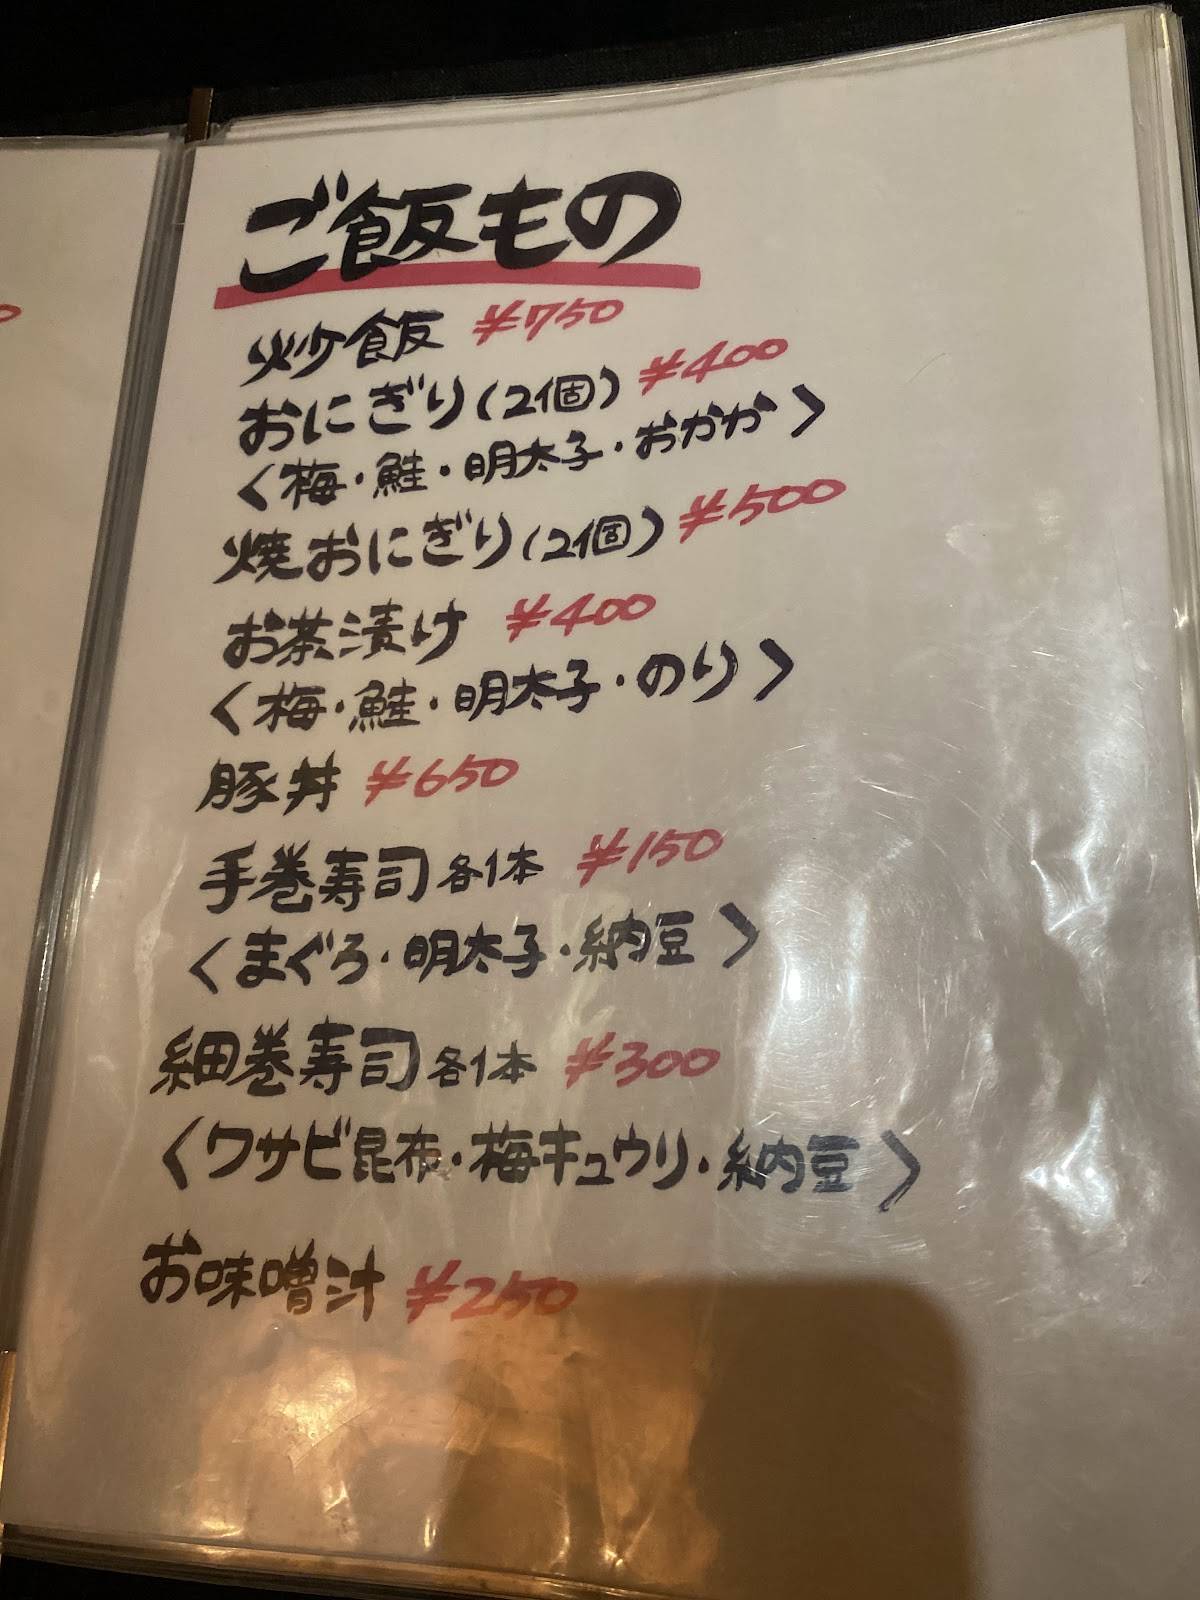 ご飯もの
炒飯 ¥750
おにぎり(2個) ¥400
〈梅・鮭・明太子・おかか〉
焼おにぎり(2個) ¥500
お茶漬け ¥400
〈梅・鮭・明太子・のり〉
豚丼 ¥650
手巻寿司各1本 ¥150
〈まぐろ・明太子・納豆〉
細巻寿司各1本 ¥300
〈ワサビ昆布・梅キュウリ・納豆〉
お味噌汁 ¥250